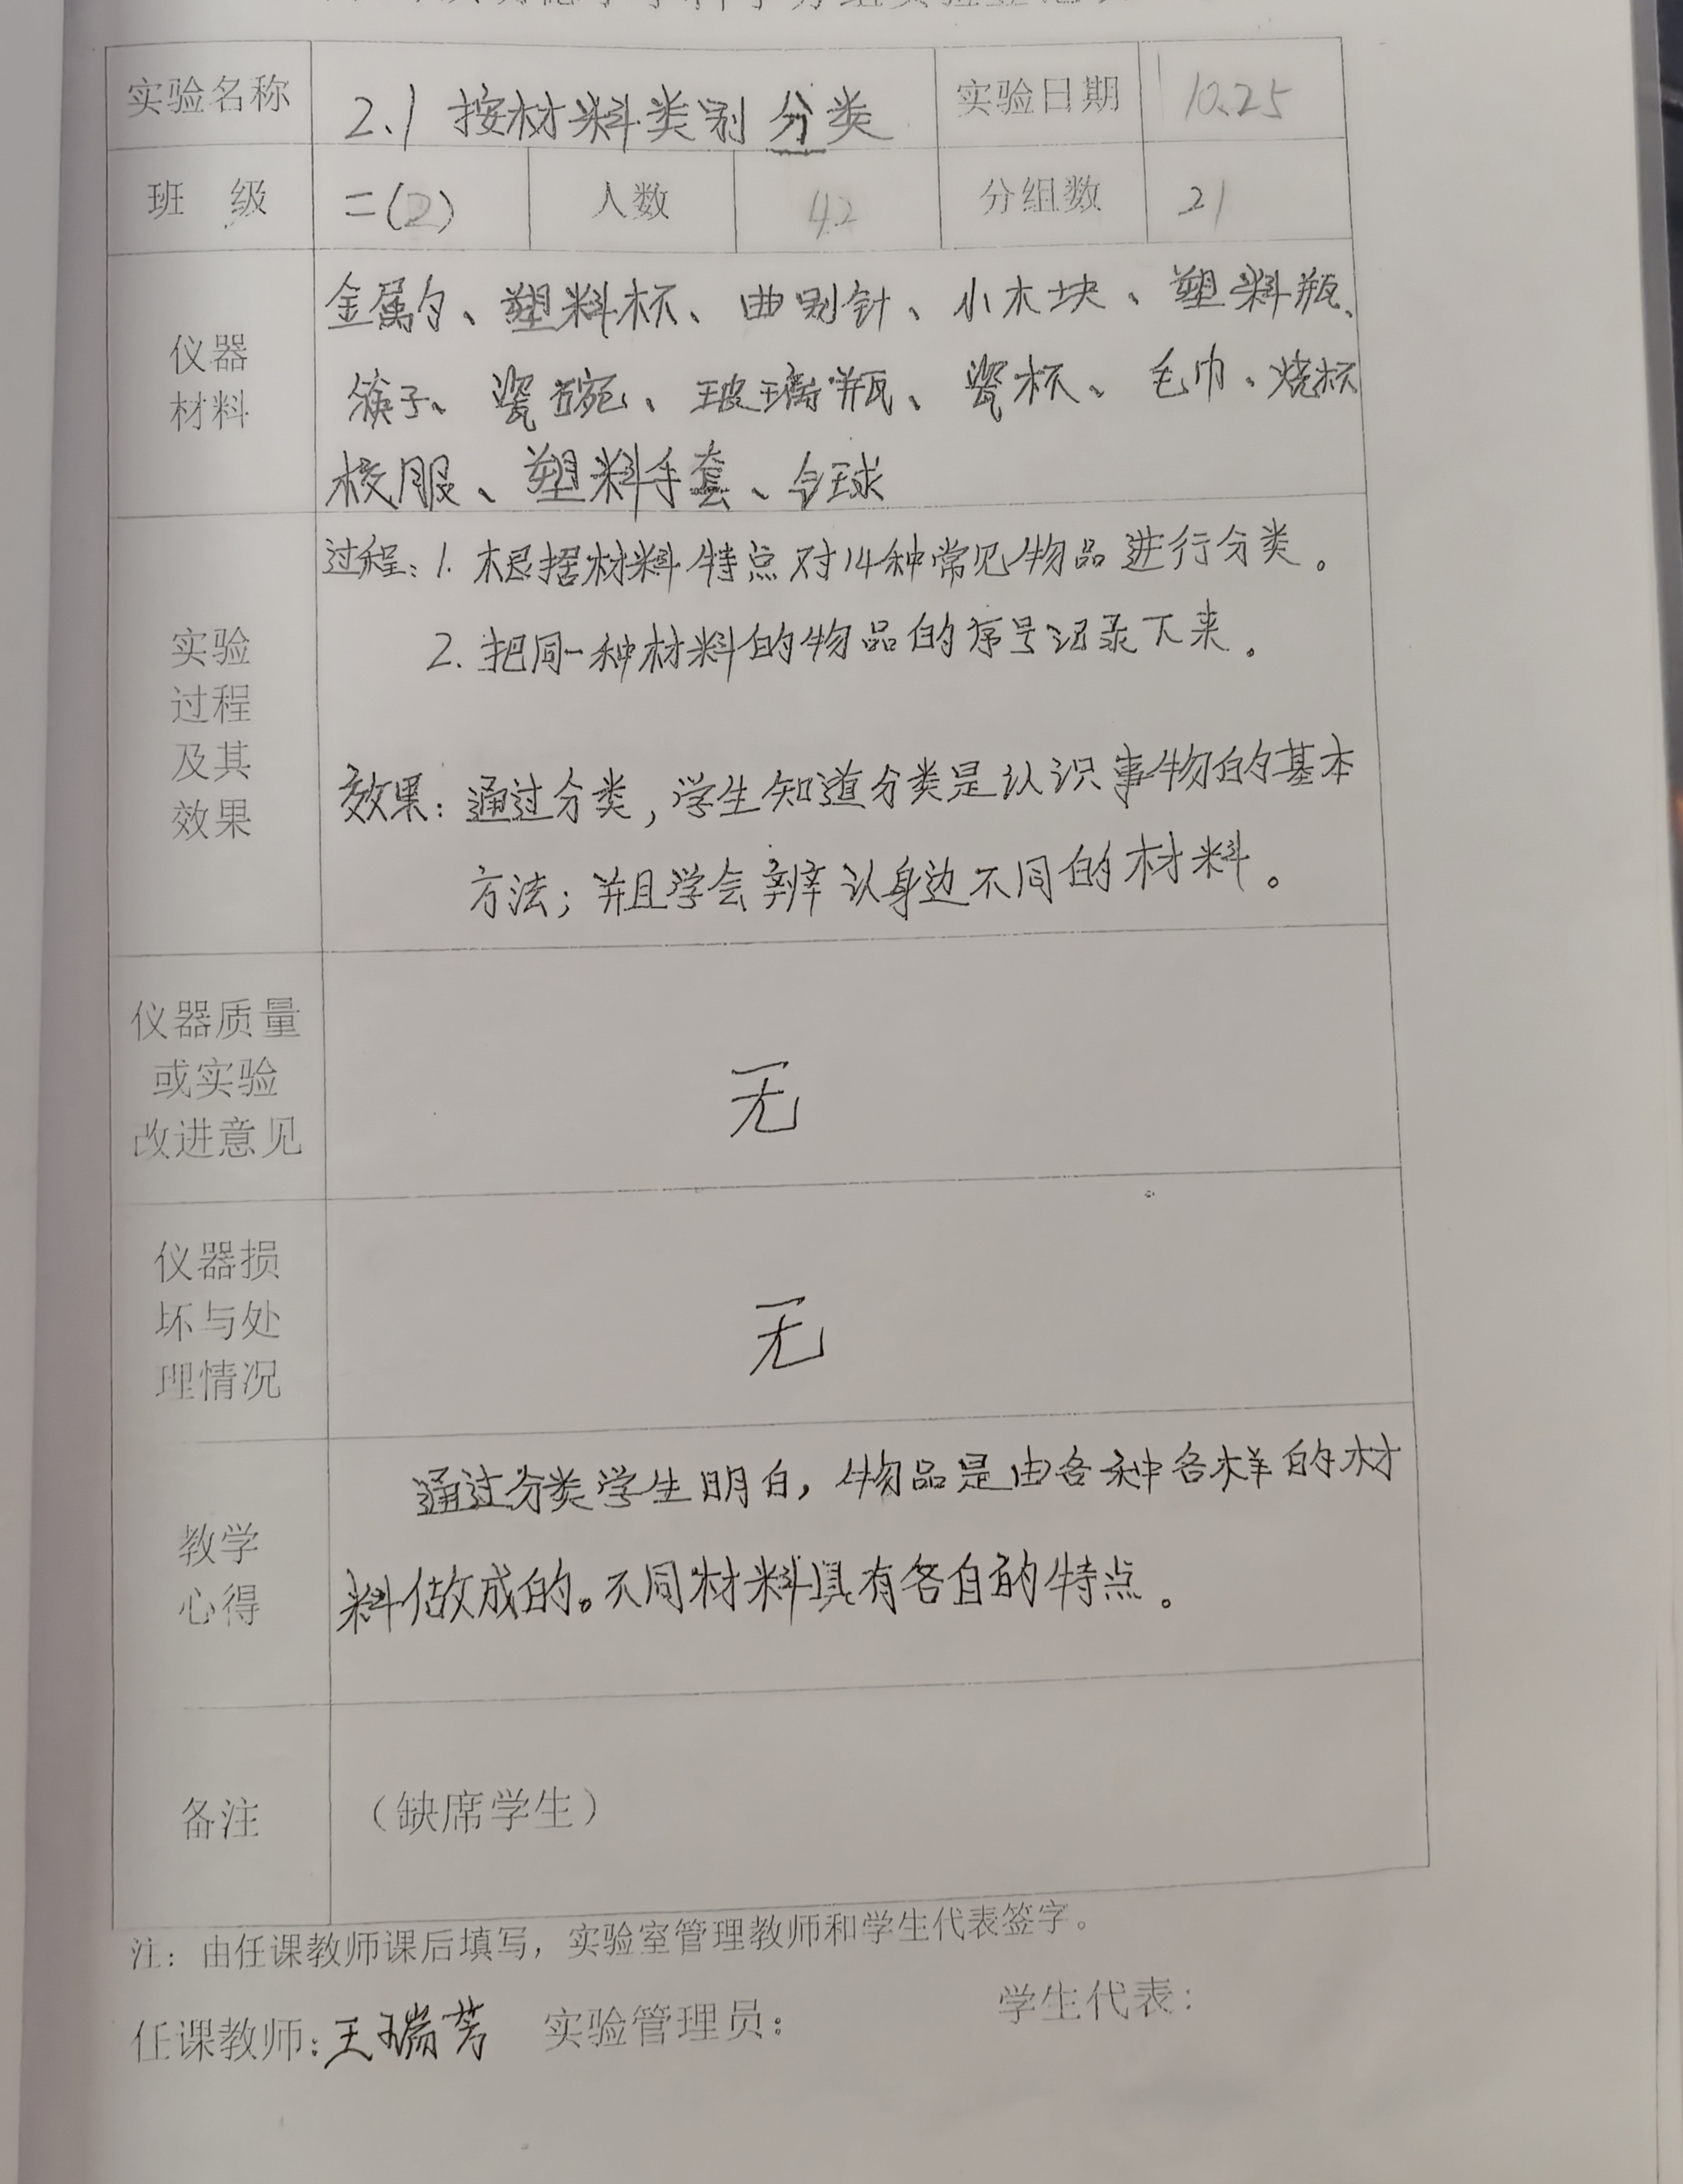 学科学分组实验登记
实验名称 2.1 按材料类别分类 实验日期 10.25
班 级 二(2) 人数 42 分组数 21
仪器
材料
金属勺、塑料杯、曲别针、小木块、塑料瓶、
筷子、瓷碗、玻璃瓶、瓷杯、毛巾、烧杯
校服、塑料手套、球
实验
过程
及其
效果
过程:1. 根据材料特点对14种常见物品进行分类。
2. 把同一种材料的物品的序号记录下来。
效果:通过分类,学生知道分类是认识事物的基本
方法;并且学会辨认身边不同的材料。
仪器质量
或实验
改进意见
无
仪器损
坏与处
理情况
无
教学
心得
通过分类学生明白,物品是由各种各样的材
料做成的。不同材料具有各自的特点。
备注 (缺席学生)
注:由任课教师课后填写,实验室管理教师和学生代表签字。
任课教师:王瑞芳 实验管理员: 学生代表: